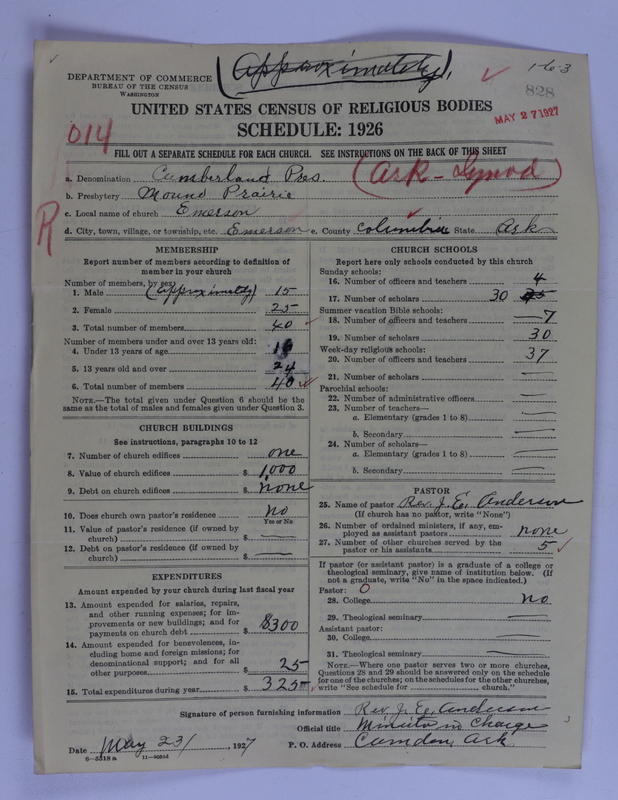 Approximately,
1-6-3
828
MAY 27 1927
DEPARTMENT OF COMMERCE
BUREAU OF THE CENSUS
WASHINGTON
UNITED STATES CENSUS OF RELIGIOUS BODIES
SCHEDULE: 1926
014
FILL OUT A SEPARATE SCHEDULE FOR EACH CHURCH. SEE INSTRUCTIONS ON THE BACK OF THIS SHEET
a. Denomination Cumberland Pres. (Ark-Synod)
b. Presbytery Mound Prairie
c. Local name of church Emerson
R
d. City, town, village, or township, etc. Emerson e. County Columbia State Ark
MEMBERSHIP
Report number of members according to definition of
member in your church
Number of members, by sex:
1. Male (approximately) 15
2. Female 25
3. Total number of members 40
Number of members under and over 13 years old:
4. Under 13 years of age 16
5. 13 years old and over 24
6. Total number of members 40
NOTE.—The total given under Question 6 should be the
same as the total of males and females given under Question 3.
CHURCH BUILDINGS
See instructions, paragraphs 10 to 12
7. Number of church edifices one
8. Value of church edifices $ 1,000
9. Debt on church edifices $ none
10. Does church own pastor's residence? no
Yes or No
11. Value of pastor's residence (if owned by
church) $
12. Debt on pastor's residence (if owned by
church) $
EXPENDITURES
Amount expended by your church during last fiscal year
13. Amount expended for salaries, repairs,
and other running expenses; for im-
provements or new buildings; and for
payments on church debt $300
14. Amount expended for benevolences, in-
cluding home and foreign missions; for
denominational support; and for all
other purposes $ 25
15. Total expenditures during year $ 325
CHURCH SCHOOLS
Report here only schools conducted by this church
Sunday schools:
16. Number of officers and teachers 4
17. Number of scholars 30
Summer vacation Bible schools:
18. Number of officers and teachers 7
19. Number of scholars 30
Week-day religious schools:
20. Number of officers and teachers 37
21. Number of scholars
Parochial schools:
22. Number of administrative officers
23. Number of teachers—
a. Elementary (grades 1 to 8)
b. Secondary
24. Number of scholars—
a. Elementary (grades 1 to 8)
b. Secondary
PASTOR
25. Name of pastor Rev. J. E. Anderson
(If church has no pastor, write "None")
26. Number of ordained ministers, if any, em-
ployed as assistant pastors none
27. Number of other churches served by the
pastor or his assistants 5
If pastor (or assistant pastor) is a graduate of a college or
theological seminary, give name of institution below. (If
not a graduate, write "No" in the space indicated.)
Pastor: 0
28. College no
29. Theological seminary
Assistant pastor:
30. College
31. Theological seminary
NOTE.—Where one pastor serves two or more churches,
Questions 28 and 29 should be answered only on the schedule
for one of the churches; on the schedules for the other churches,
write "See schedule for church."
Signature of person furnishing information Rev. J. E. Anderson
Official title Minister in Charge
Date May 23/, 1927 P. O. Address Camden, Ark.
6-5318 a